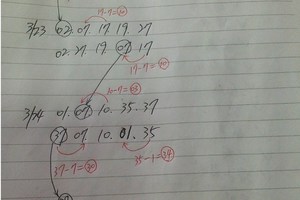 17-7=10
3/23 02. 07. 17. 19. 27
02. 27. 19. 07. 17
17-7=10
10-7=03
3/24 01. 07. 10. 35. 37
37 07. 10. 01. 35
37-7=30 35-1=34